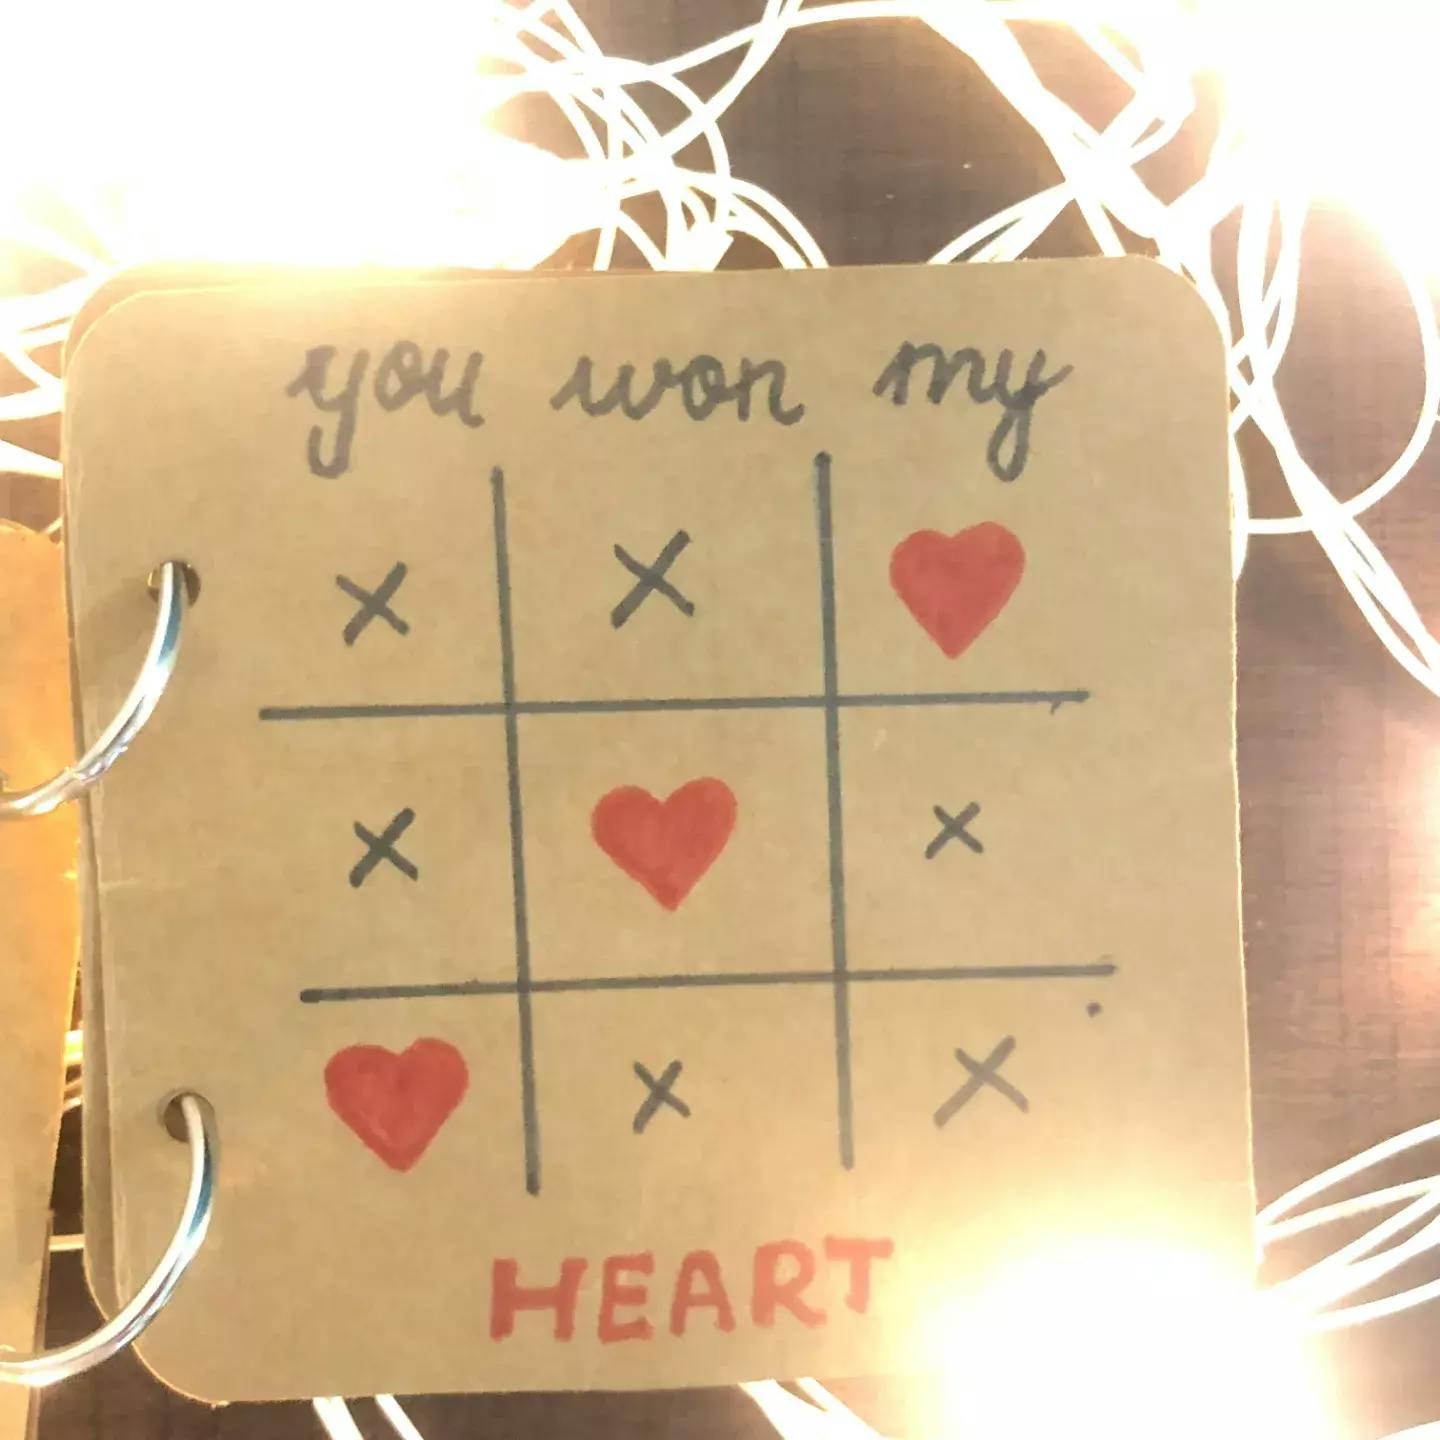 you won my
x x
x x
x x
HEART